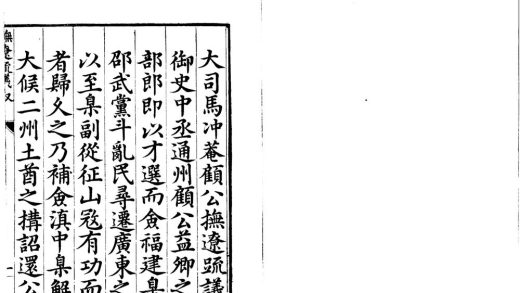 大司馬冲菴顧公撫遼疏議
御史中丞通州顧公益卿之
部郎即以才選而僉福建臬
邵武黨斗亂民尋遷廣東之
以至臬副從征山冦有功而
者歸久之乃補僉滇中臬解
大候二州土酋之搆詔還公